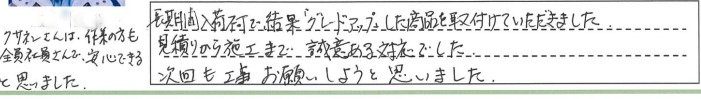 クサネンさんは、作業の方も
全員社員さんで、安心できる
と思いました。
長期間入荷不可で結果グレードアップした商品を取付けていただきました。
見積りから施工まで誠意ある対応でした。
次回も工事お願いしようと思いました。